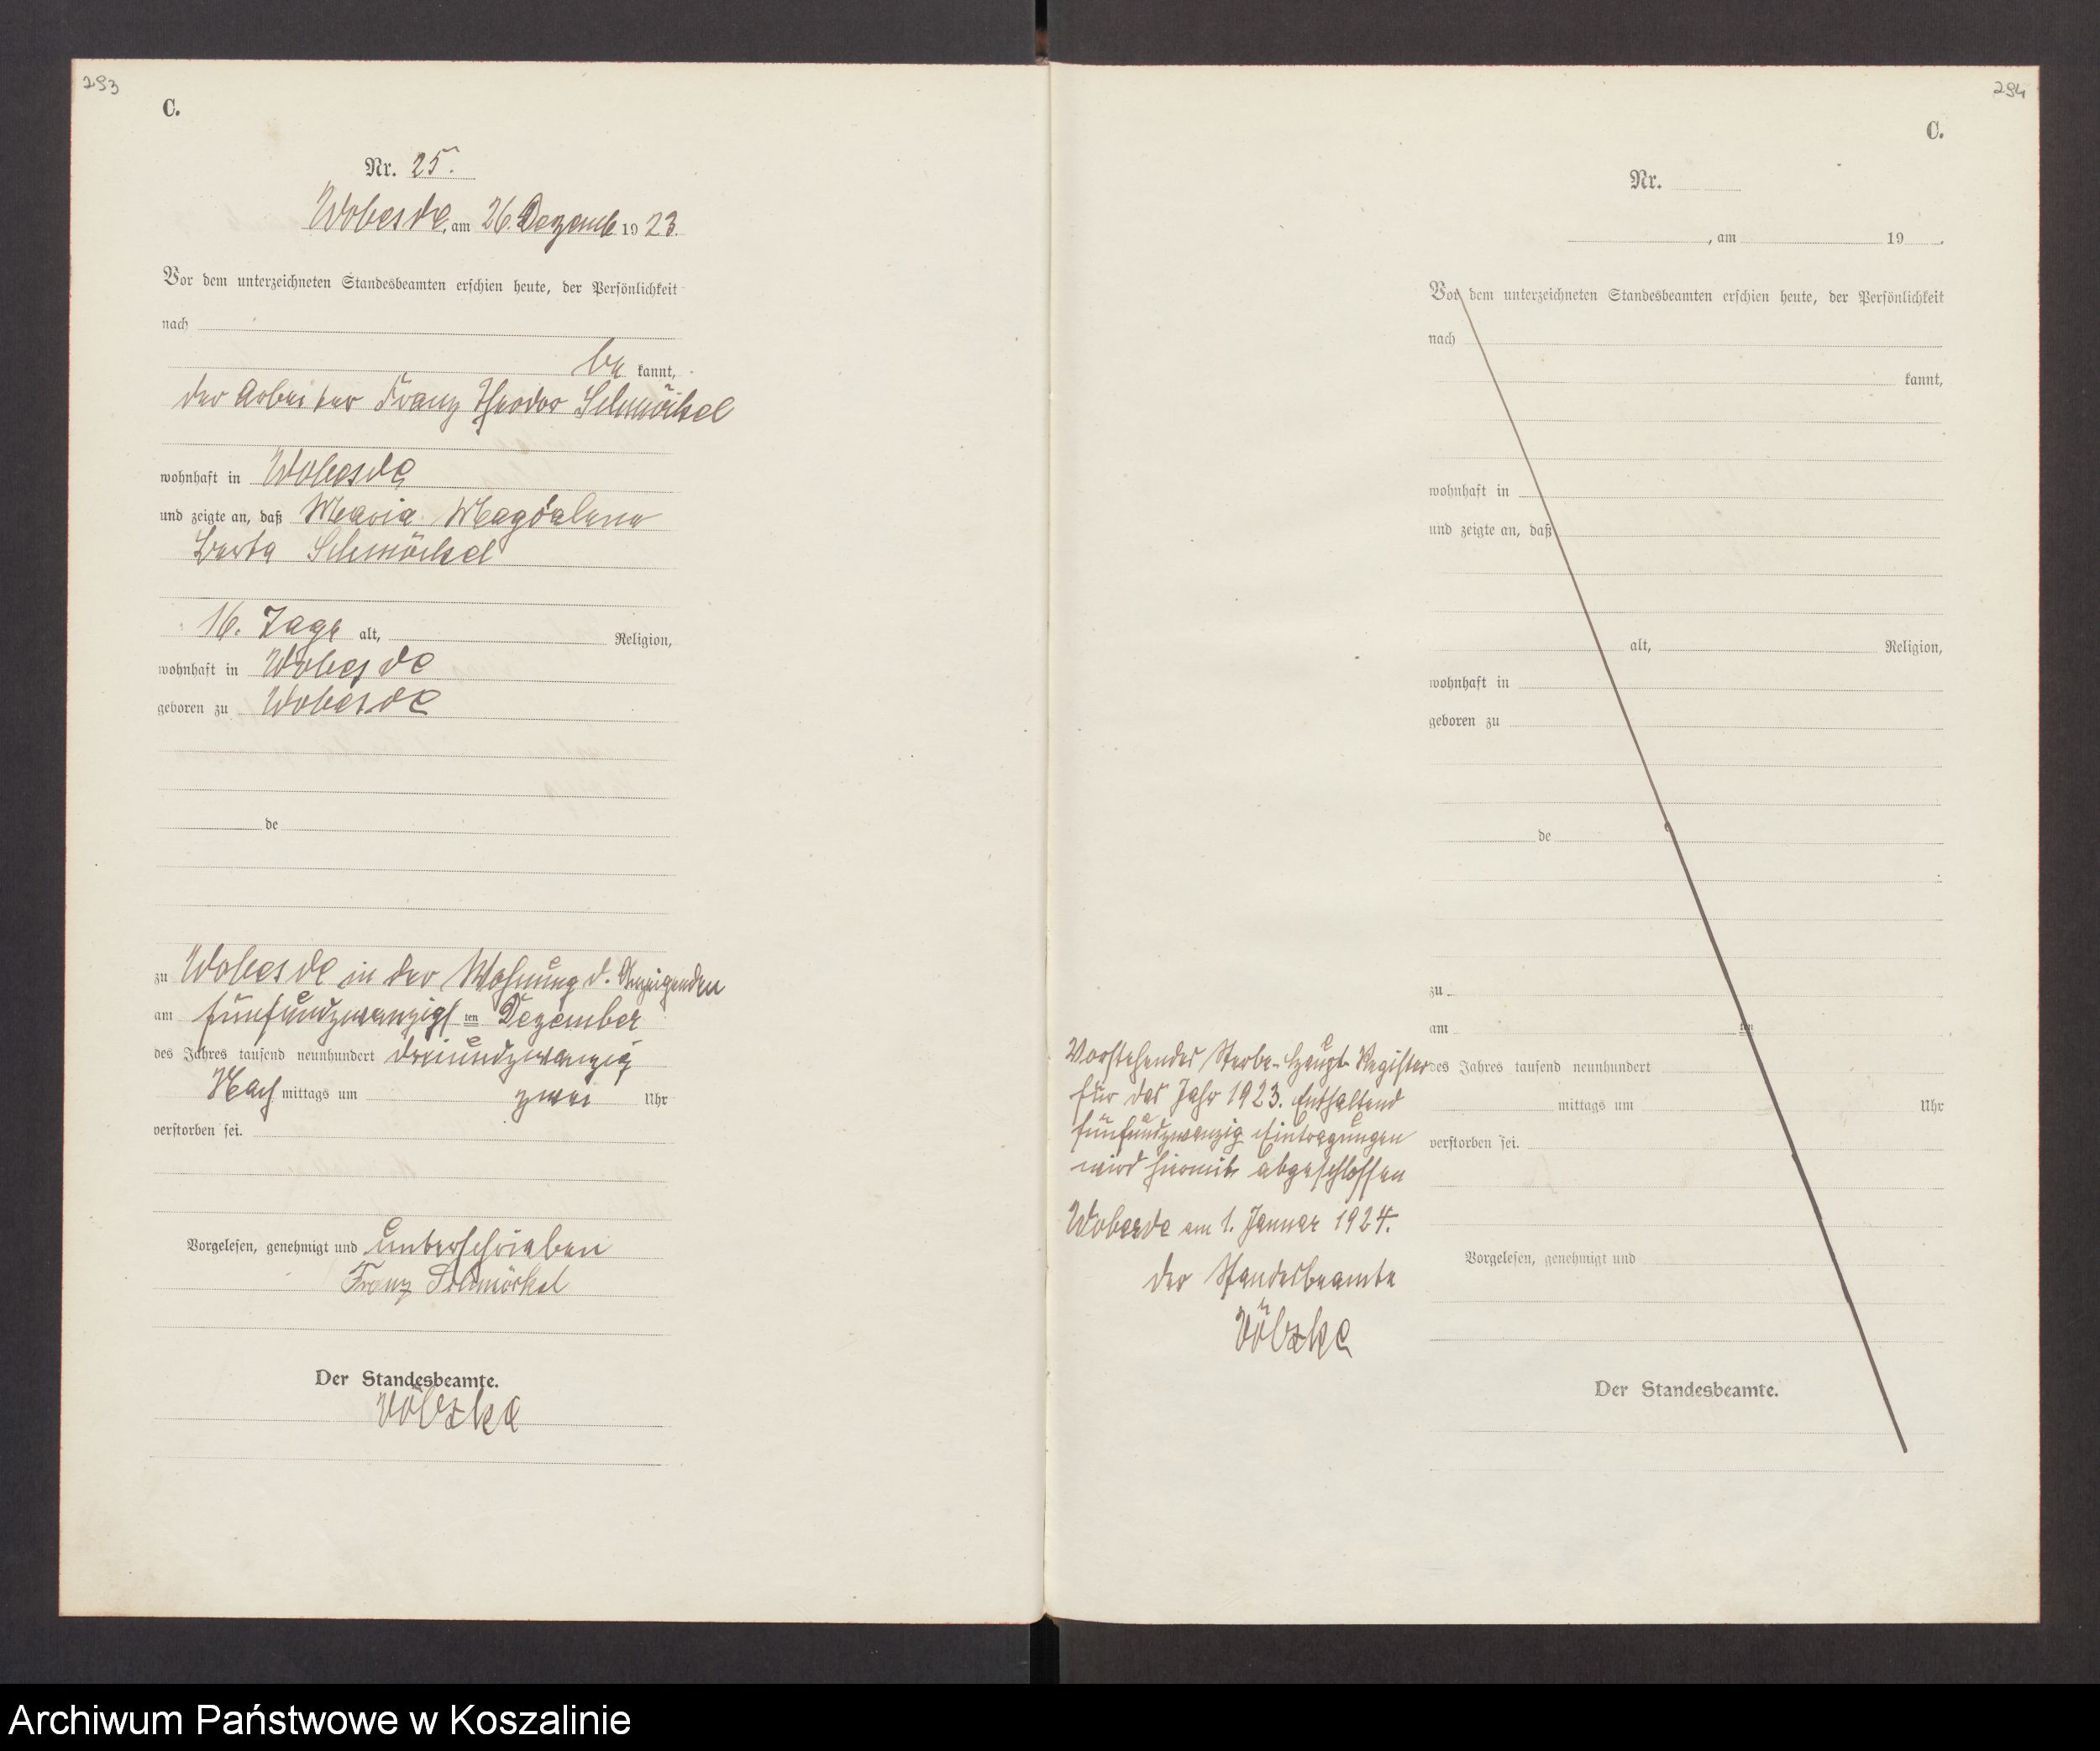 293
C.
Nr. 25.
Wobesde, am 26. Dezemb 1923.
Vor dem unterzeichneten Standesbeamten erschien heute, der Persönlichkeit
nach
be kannt,
der Arbeiter Franz Theodor Schmöckel
wohnhaft in Wobesde
und zeigte an, daß Maria Magdalena
Berta Schmöckel
16. Tage alt, Religion,
wohnhaft in Wobesde
geboren zu Wobesde
de
zu Wobesde in der Wohnung d. Anzeigenden
am fünfundzwanzigsten Dezember
des Jahres tausend neunhundert dreiundzwanzig
Nach mittags um zwei Uhr
verstorben sei.
Vorgelesen, genehmigt und unterschrieben
Franz Schmöckel
Der Standesbeamte.
Völzke
294
C.
Nr.
, am 19 .
Vor dem unterzeichneten Standesbeamten erschien heute, der Persönlichkeit
nach
kannt,
wohnhaft in
und zeigte an, daß
alt, Religion,
wohnhaft in
geboren zu
de
zu
am ten
des Jahres tausend neunhundert
mittags um Uhr
verstorben sei.
Vorgelesen, genehmigt und
Der Standesbeamte.
Vorstehendes Sterbe-Haupt-Register
für das Jahr 1923. Enthaltend
fünfundzwanzig Eintragungen
wird hiermit abgeschlossen
Wobesde am 1. Januar 1924.
Der Standesbeamte
Völzke
Archiwum Państwowe w Koszalinie